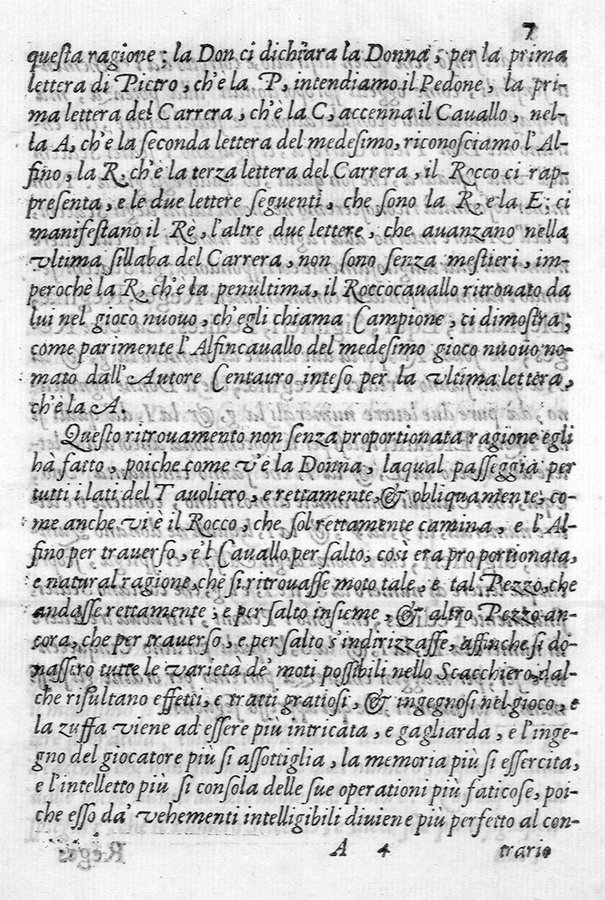 7
queſta ragione; la Don ci dichiara la Donna; per la prima
lettera di Pietro, ch'è la P, intendiamo il Pedone, la pri-
ma lettera del Carrera, ch'è la C, accenna il Cauallo, nel-
la A, ch'è la seconda lettera del medesimo, riconosciamo l'Al-
fino, la R, ch'è la terza lettera del Carrera, il Rocco ci rap-
presenta, e le due lettere seguenti, che sono la R, e la E; ci
manifestano il Rè, l'altre due lettere, che auanzano nella
vltima sillaba del Carrera, non sono senza mestieri, im-
peroche la R, ch'è la penultima, il Roccocauallo ritrouato da
lui nel gioco nuouo, ch'egli chiama Campione, ci dimostra;
come parimente l'Alfincauallo del medesimo gioco nuouo no-
mato dall'Autore Centauro inteso per la vltima lettera,
ch'è la A.
Questo ritrouamento non senza proportionata ragione egli
hà fatto, poiche come v'è la Donna, laqual paſſeggia per
tutti i lati del Tauoliero, e rettamente, & obliquamente, co-
me anche vi è il Rocco, che sol rettamente camina, e l'Al-
fino per trauerso, e l Cauallo per salto, così era proportionata,
e natural ragione, che si ritrouaſſe moto tale, e tal Pezzo, che
andaſſe rettamente, e per salto insieme, & altro Pezzo an-
cora, che per trauerso, e per salto s'indirizzaſſe, affinche si do-
naſſero tutte le varietà de' moti poſſibili nello Scacchiero, dal-
che risultano effetti, e tratti gratiosi, & ingegnosi nel gioco, e
la zuffa viene ad eſſere più intricata, e gagliarda, e l'inge-
gno del giocatore più si aſſottiglia, la memoria più si eſſercita,
e l'intelletto più si consola delle sue operationi più faticose, poi-
che eſſo da' vehementi intelligibili diuiene più perfetto al con-
A 4 trario